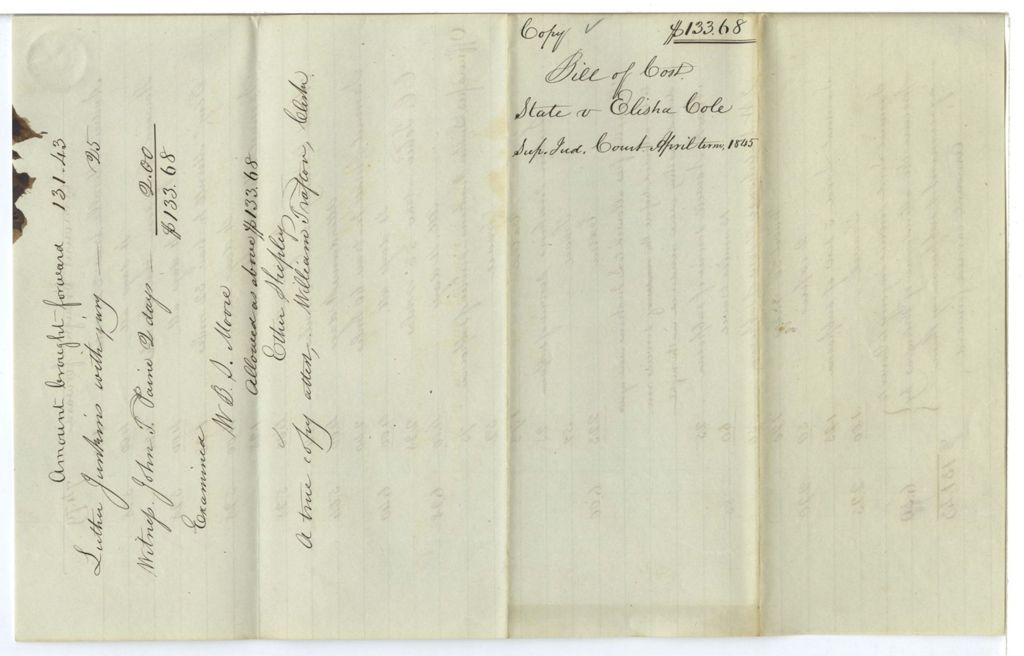 Amount brought forward 131.43
Luther Junkins with jury 25
Witness John T. Paine 2 days 2.00
$133.68
Examined
W B. S. Moore
Allowed as above $133.68
Ether Shepley
A true copy attest, William Trafton, Clerk
Copy ✓ $133.68
Bill of Cost
State v Elisha Cole
Sup. Jud. Court April term, 1845